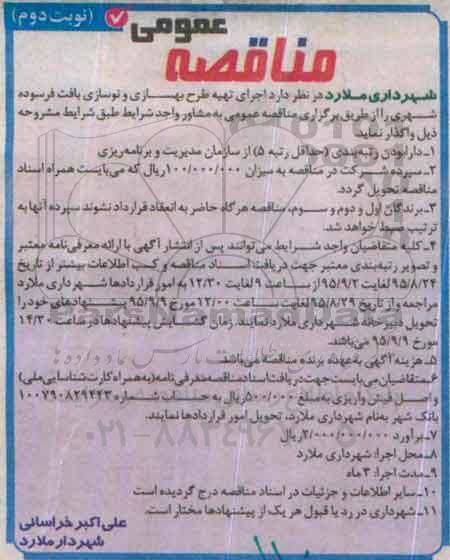 (نوبت دوم)
عمومی
مناقصه
شهرداری ملارد در نظر دارد اجرای تهیه طرح بهسازی و نوسازی بافت فرسوده
شهری را از طریق برگزاری مناقصه عمومی به مشاور واجد شرایط طبق شرایط مشروحه
ذیل واگذار نماید
۱_دارابودن رتبه‌بندی (حداقل رتبه ۵) از سازمان مدیریت و برنامه‌ریزی
۲_سپرده شرکت در مناقصه به میزان ۱۰۰/۰۰۰/۰۰۰ریال که می‌بایست همراه اسناد
مناقصه تحویل گردد.
۳_برندگان اول و دوم و سوم، مناقصه هرگاه حاضر به انعقاد قرارداد نشوند سپرده آنها به
ترتیب ضبط خواهد شد.
۴_کلیه متقاضیان واجد شرایط می‌توانند پس از انتشار آگهی با ارائه معرفی‌نامه معتبر
و تصویر رتبه‌بندی معتبر جهت دریافت اسناد مناقصه و کسب اطلاعات بیشتر از تاریخ
۹۵/۸/۲۴ لغایت ۹۵/۹/۲ از ساعت ۹ لغایت ۱۲/۳۰ به امور قراردادها شهرداری ملارد
مراجعه و از تاریخ ۹۵/۸/۲۹ لغایت ساعت ۱۲/۰۰ مورخ ۹۵/۹/۹ پیشنهادهای خود را
تحویل دبیرخانه شهرداری ملارد نمایند. زمان گشایش پیشنهادها در ساعت ۱۴/۳۰
مورخ ۹۵/۹/۹ می‌باشد.
۵_هزینه آگهی به عهده برنده مناقصه می‌باشد.
۶_متقاضیان می‌بایست جهت دریافت اسناد مناقصه معرفی‌نامه (به همراه کارت شناسایی ملی)
و اصل فیش واریزی به مبلغ ۵۰۰/۰۰۰ریال به حساب شماره ۱۰۰۷۹۰۸۲۹۴۴۳
بانک شهر به‌نام شهرداری ملارد، تحویل امور قراردادها نمایند.
۷_برآورد ۲/۰۰۰/۰۰۰/۰۰۰ریال
۸_محل اجرا: شهرداری ملارد
۹_مدت اجرا: ۳ماه
۱۰_سایر اطلاعات و جزئیات در اسناد مناقصه درج گردیده است
۱۱_شهرداری در رد یا قبول هر یک از پیشنهادها مختار است.
علی‌اکبر خراسانی
شهردار ملارد
ParsNamadData